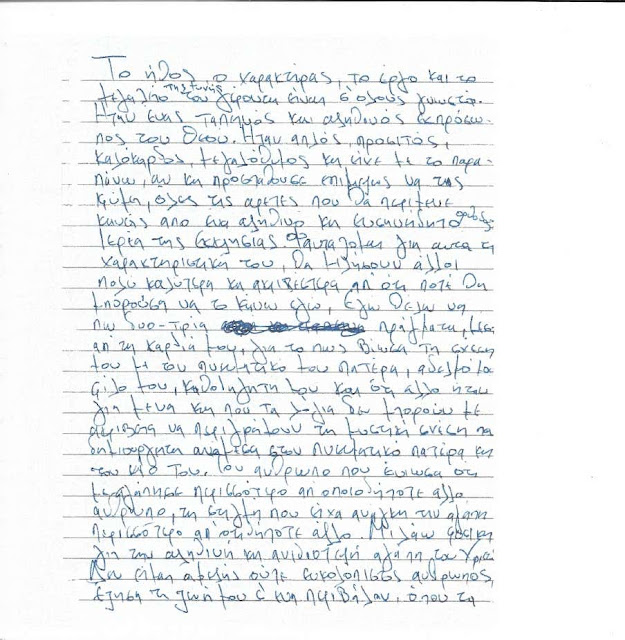 Το ήθος, ο χαρακτήρας, το έργο και το
μεγαλείο της ψυχής του γέροντα είναι σ' όλους γνωστά.
Ήταν ένας ταπεινός και αληθινός εκπρόσω-
πος του Θεού. Ήταν απλός, προσιτός,
καλόκαρδος, μεγαλόθυμος κη είχε με το παρα-
πάνω, αν κη προσπαθούσε επιμελώς να τις
κρύψει, όλες τις αρετές που θα περίμενε
κανείς από ένα αληθινό κη ευσυνείδητο
Ιερέα της εκκλησίας. για αυτά τα
χαρακτηριστικά του, θα μιλήσουν άλλοι
πολύ καλύτερα κη ακριβέστερα απ' ότι ποτέ θα
μπορούσα να το κάνω εγώ, Εγώ θέλω να
πω δυο-τρία πράγματα, μέσα
απ' τη καρδιά μου, για το πως βίωσα τη σχέση
μου με τον πνευματικό μου πατέρα, αδελφό μου
φίλο μου, καθοδηγητή μου και ότι άλλο ήταν
για μένα κη που τα λόγια δεν μπορούν με
ακρίβεια να περιγράψουν τη μυστική σχέση που
δημιουργήται ανάμεσα στον πνευματικό πατέρα κη
τον υιό του. Τον άνθρωπο που ένιωσα ότι
με αγάπησε περισσότερο απ' οποιοδήποτε άλλο
άνθρωπο, τη στιγμή που είχα ανάγκη την αγάπη
περισσότερο απ' οτιδήποτε άλλο. Μιλάω φυσικά
για την αληθινή κη ανιδιοτελή αγάπη του Χριστού
Δεν ήμουν αφελής ούτε ευκολόπιστος άνθρωπος,
έζησα τη ζωή μου σ' ένα περιβάλλον, όπου τα